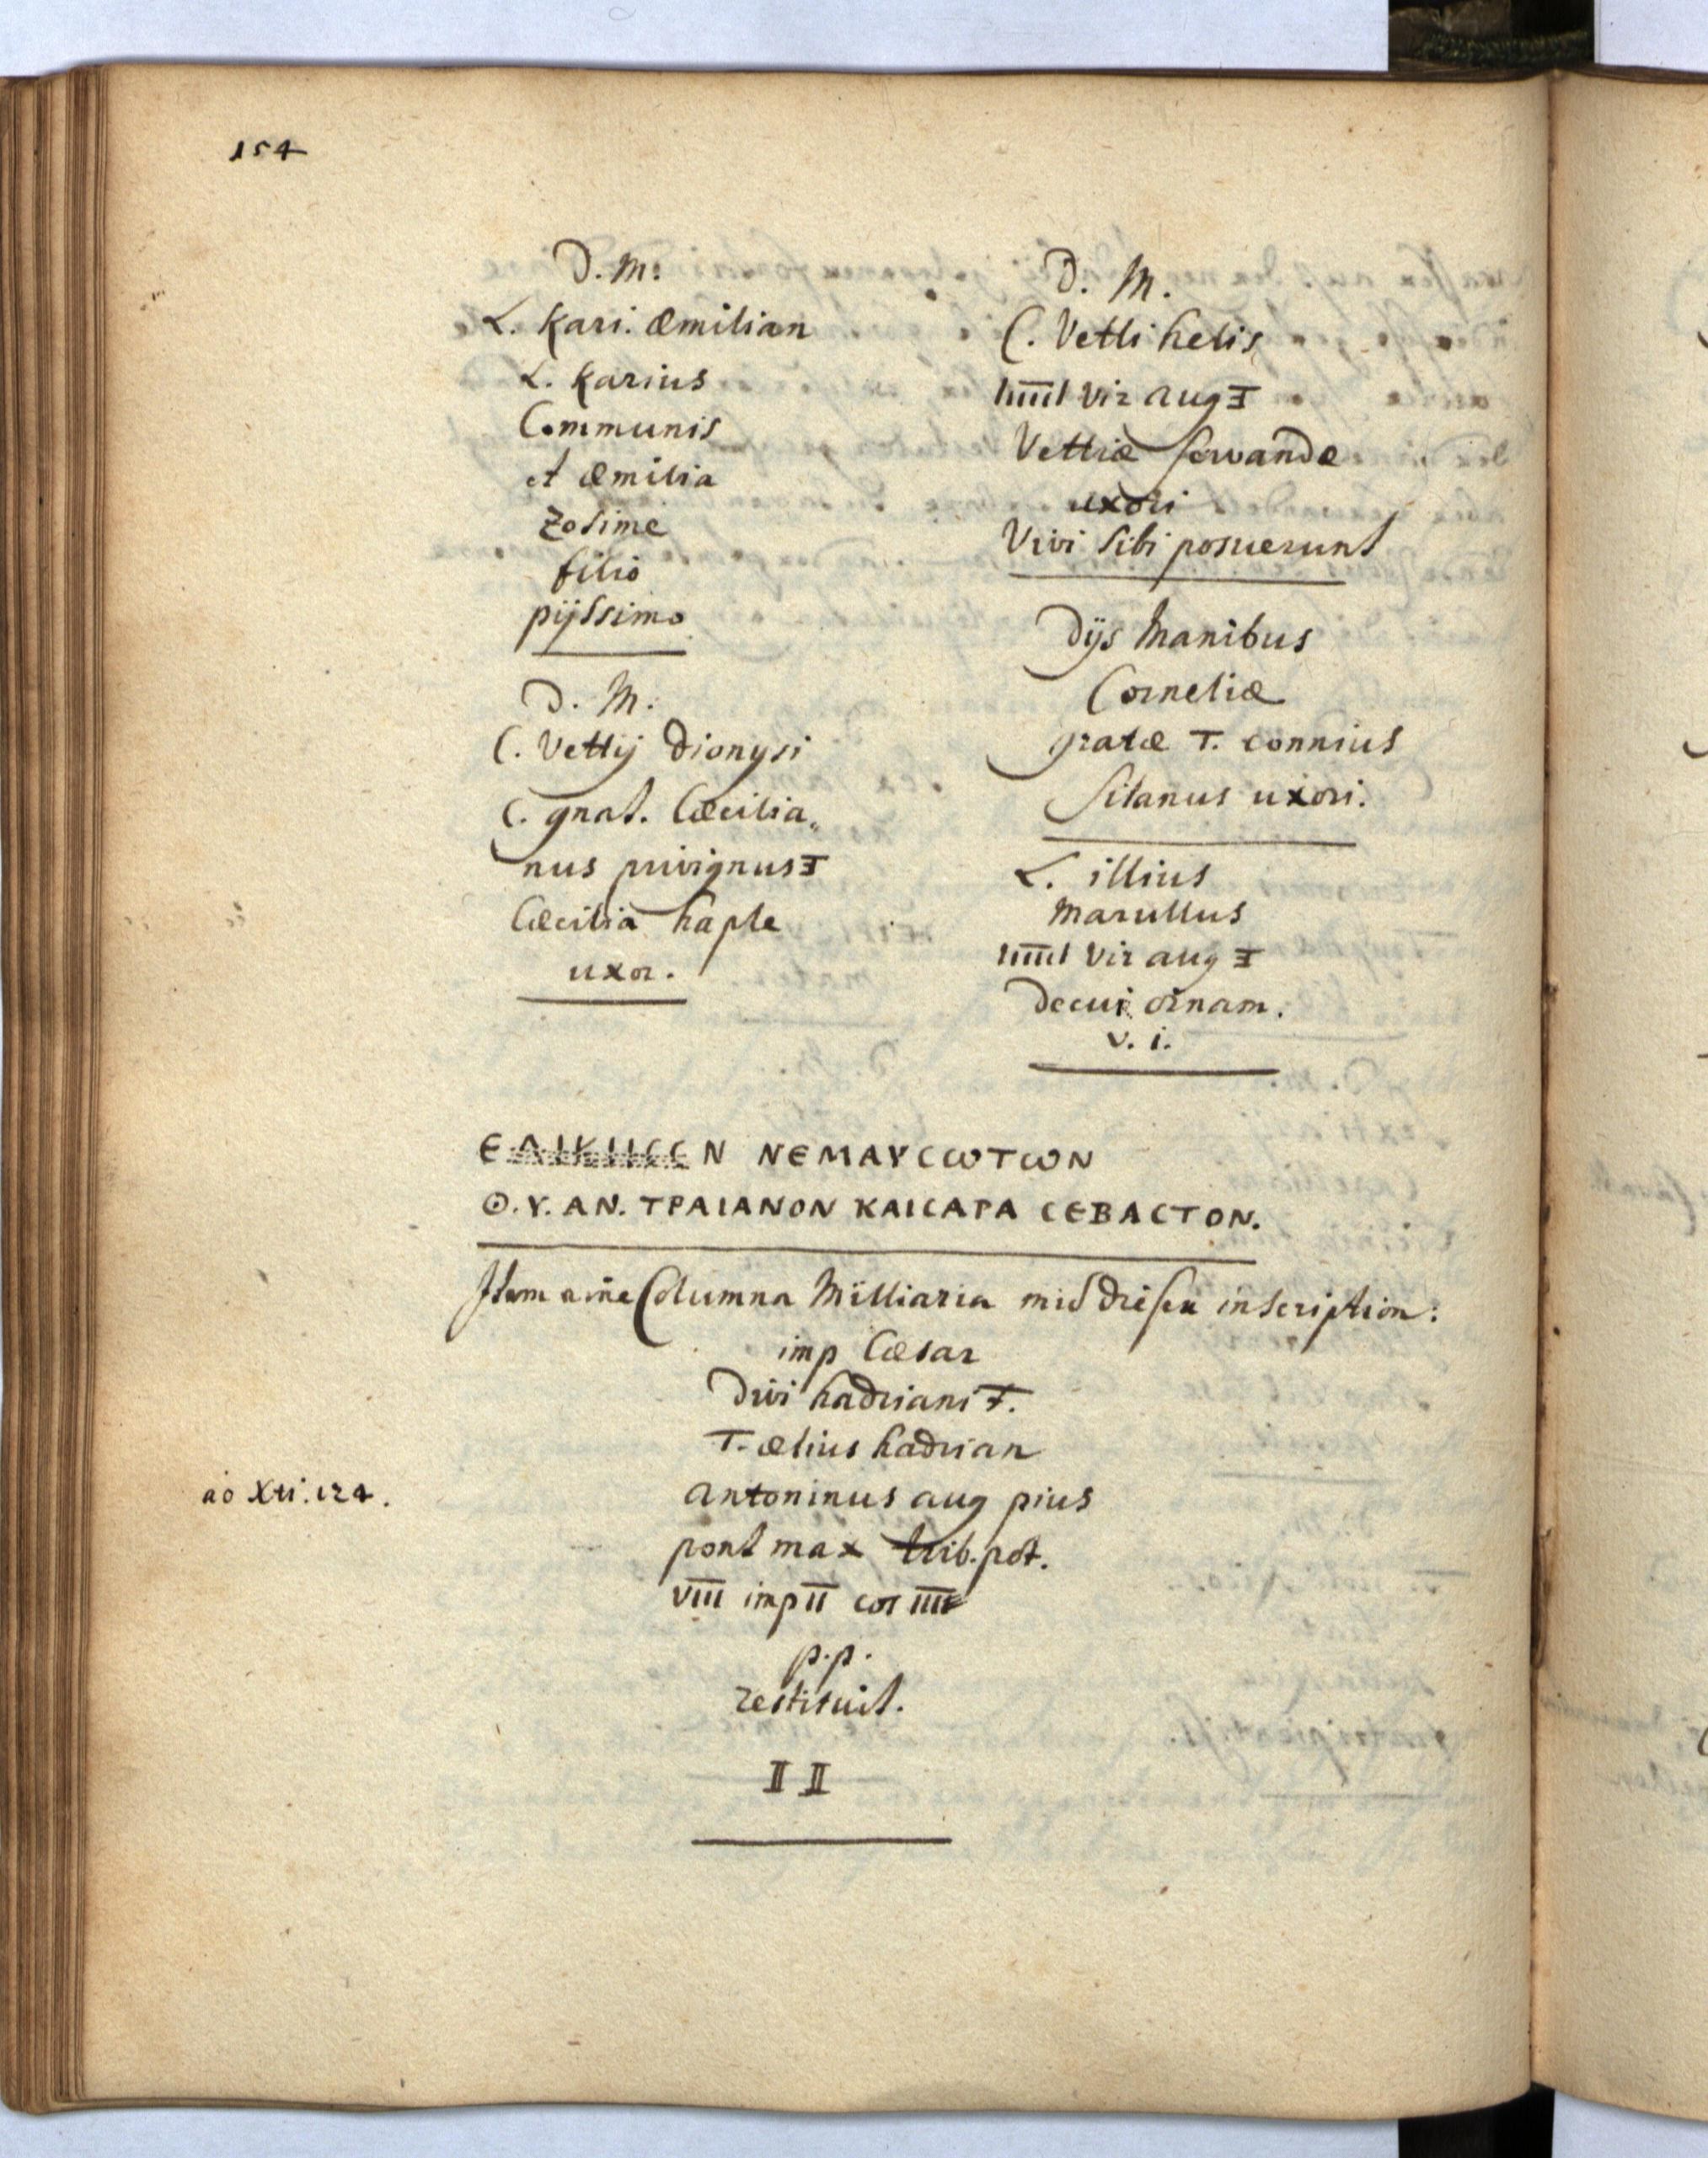 154
D. M.
L. Kari. Æmilian
L. Karius
Communis
et Æmilia
Zosime
filio
pijssimo
D. M.
C. Vettij Dionysi
C. gnat. Cæcilia„
nus privignus
Cæcilia haple
uxor.
D. M.
C. Vetti helis
IIIIII vir aug
Vettiæ servandæ
uxori
Vivi sibi posuerunt
Dijs Manibus
Corneliæ
gratæ T. connius
silanus uxori.
L. illius
Marullus
IIIIII vir aug
Decur ornam.
v. i.
N ΝΕΜΑΥCΩΤΩΝ
Θ.Υ.ΑΝ. ΤΡΑΙΑΝΟΝ ΚΑΙCΑΓΑ CΕΒΑCΤΟΝ.
Item eine Columna Milliaria mit dieser inscription:
imp Cæsar
Divi hadriani F.
T. ælius hadrian
ao Xti. 124.
antoninus aug pius
pont max trib. pot.
VIII imp II cos IIII
p.p.
restituit.
II